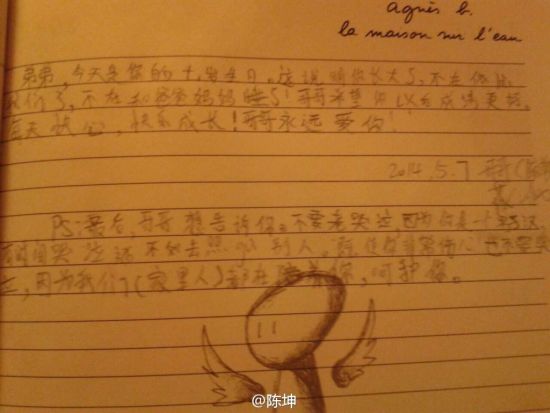 agnès b.
la maison sur l'eau
弟弟,今天是你的十岁生日,这说明你长大了,不在依
了,不在和爸爸妈妈睡了!哥哥希望你以后成绩更棒,
每天开心,快乐成长!哥哥永远爱你!
2014.5.7 哥
PS:最后,哥哥想告诉你。不要老哭泣,因为你是一个
有时间哭泣还不如去照顾别人。就伤心也不要哭
泣,因为我们(家里人)都在陪着你,呵护你。
@陈坤